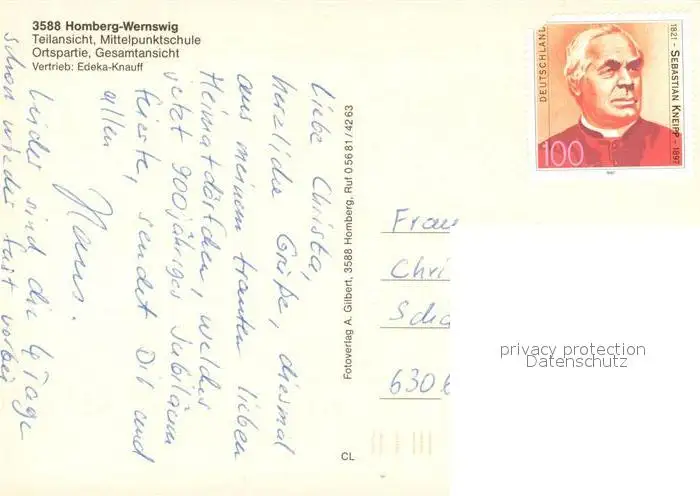 3588 Homberg-Wernswig
Teilansicht, Mittelpunktschule
Ortspartie, Gesamtansicht
Vertrieb: Edeka-Knauff
Liebe Christa,
herzliche Grüße, diesmal
aus meinem trauten lieben
Heimatdörfchen, welches
jetzt 900jähriges Jubiläum
feierte, sendet Dir und
allen
Hans.
Leider sind die 4 Tage
schon wieder fast vorbei
Fotoverlag A. Gilbert, 3588 Homberg, Ruf 0 56 81 / 42 63
CL
DEUTSCHLAND
100
1821 - SEBASTIAN KNEIPP - 1897
1997
Frau
Chri
Scha
6306
privacy protection
Datenschutz